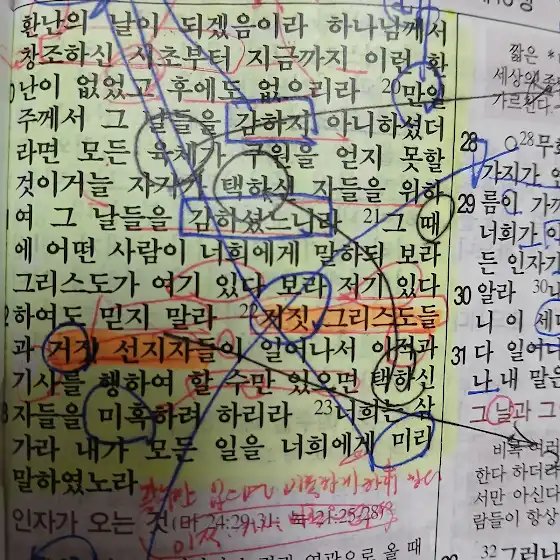 환난의 날이 되겠음이라 하나님께서
창조하신 시초부터 지금까지 이런 환
난이 없었고 후에도 없으리라 20 만일
주께서 그 날들을 감하지 아니하셨더
라면 모든 육체가 구원을 얻지 못할
것이거늘 자기가 택하신 자들을 위하
여 그 날들을 감하셨느니라 21 그 때
에 어떤 사람이 너희에게 말하되 보라
그리스도가 여기 있다 보라 저기 있다
하여도 믿지 말라 22 거짓 그리스도들
과 거짓 선지자들이 일어나서 이적과
기사를 행하여 할 수만 있으면 택하신
자들을 미혹하려 하리라 23 너희는 삼
가라 내가 모든 일을 너희에게 미리
말하였노라
인자가 오는 것(마 24:29-31; 눅 21:25-28)
짧은
세상의
가르친다
28 28 무화
가지가
29 름이 가까
너희가
든 인자가
30 알라 30
니 이 세
31 다 일어
나 내 말은
그 날과 그
비록 여러
한다 하더라
서만 아신다
람들이 항상
32 그러나